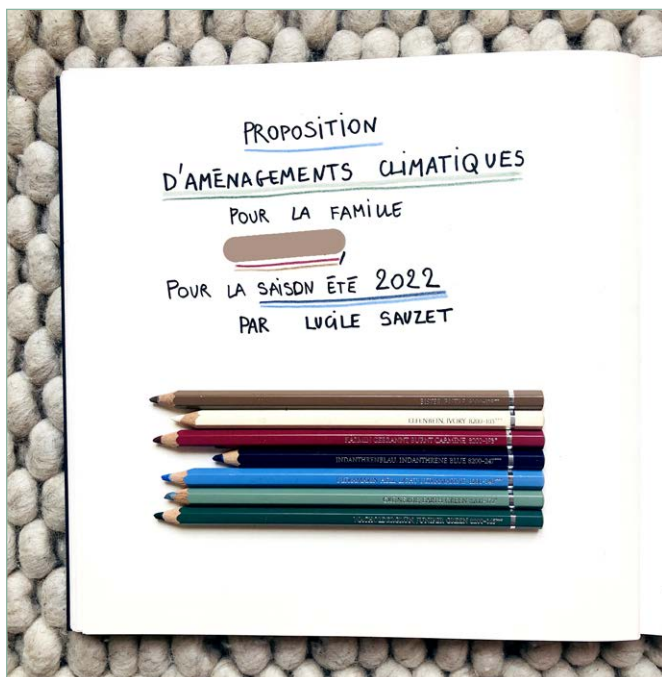 PROPOSITION
D'AMÉNAGEMENTS CLIMATIQUES
POUR LA FAMILLE
POUR LA SAISON ÉTÉ 2022
PAR LUCILE SAUZET
ELFENBEIN, IVORY 8200-103***
KARMIN GEBRANNT BURNT CARMINE 8200-193*
INDANTHRENBLAU, INDANTHRENE BLUE 8200-247***